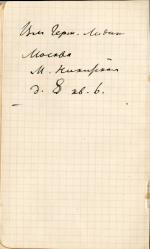 Изм Герм. Лидин
Москва
М. Никитская
д. 8 кв. 6.